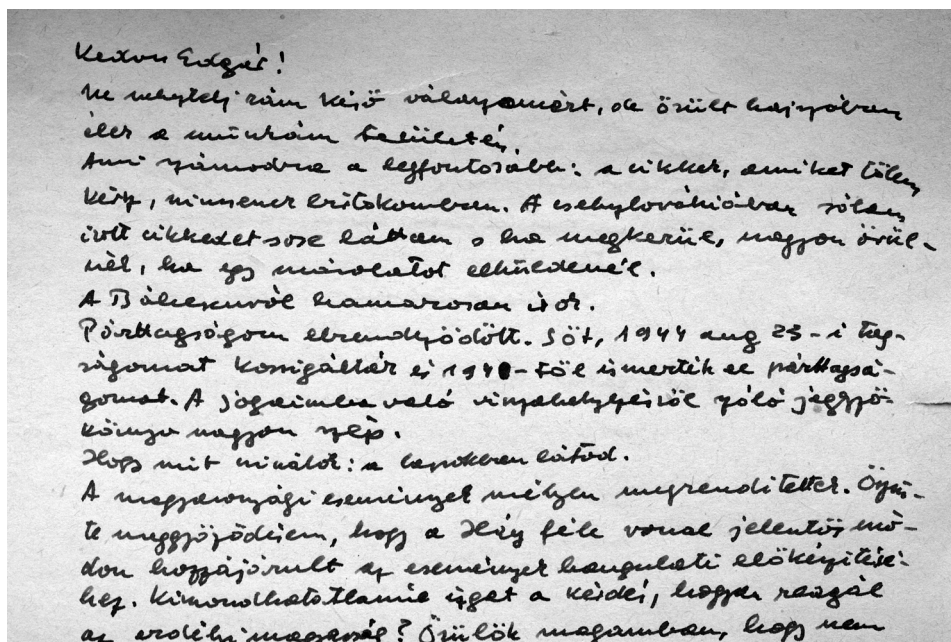 Kedves Edgár!
Ne neheztelj rám késő válaszomért, de őrült hajszában
élek a munkám területén.
Ami számodra a legfontosabb: a cikkek, amiket tőlem
kérsz, nincsenek birtokomban. A csehszlovákiában rólam
írott cikkedet sose láttam s ha megkerül, nagyon örül-
nék, ha egy másolatot elküldenél.
A hamarosan írok.
Párttagságom elrendeződött. Sőt, 1944 aug 23-i tag-
ságomat korrigálták és 1940-től ismerték el párttagsá-
gomat. A jogaimba való visszahelyezésről szóló jegyző-
könyv nagyon szép.
Hogy mit csinálok: a lapokban látod.
A magyarországi események mélyen megrendítettek. Őszin-
te meggyőződésem, hogy a Háy féle vonal jelentős mó-
don hozzájárult az események hangulati előkészítésé-
hez. Kimondhatatlanul izgat a kérdés, hogyan reagál
az erdélyi magyarság? Örülök magamban, hogy nem